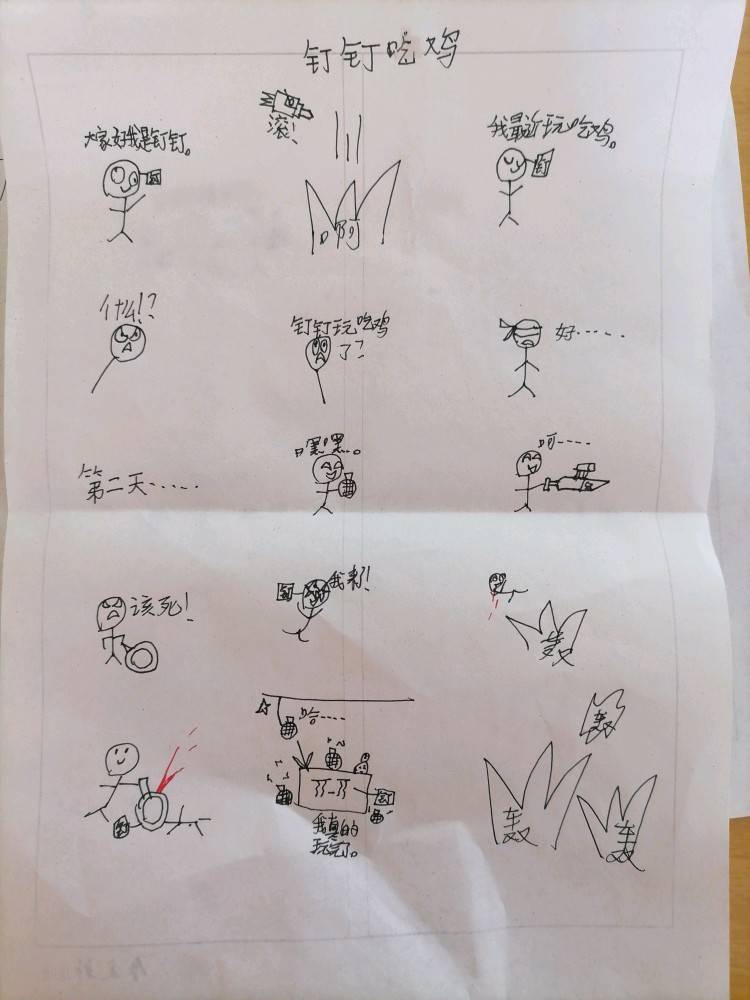 钉钉吃鸡
大家好我是钉钉。
滚!
啊
我最近玩吃鸡。
什么!?
钉钉玩吃鸡
了?
好……
第二天……
嘿嘿。
呵……
该死!
我来了!
轰
哈……
我真的
玩完了。
轰
轰
轰